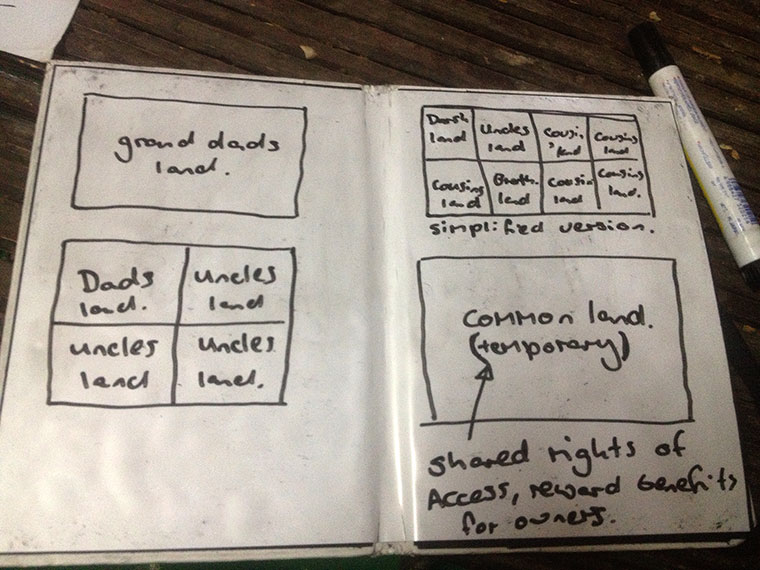 grand dads
land.
Dads
land.
uncles
land
uncles
land
Uncles
land.
land
Uncles
land
Cousin
's land
Cousins
land
Cousins
land
Broth.
land
Cousin
land
Cousins
land.
simplified version.
common land.
(temporary)
shared rights of
Access, reward benefits
for owners.